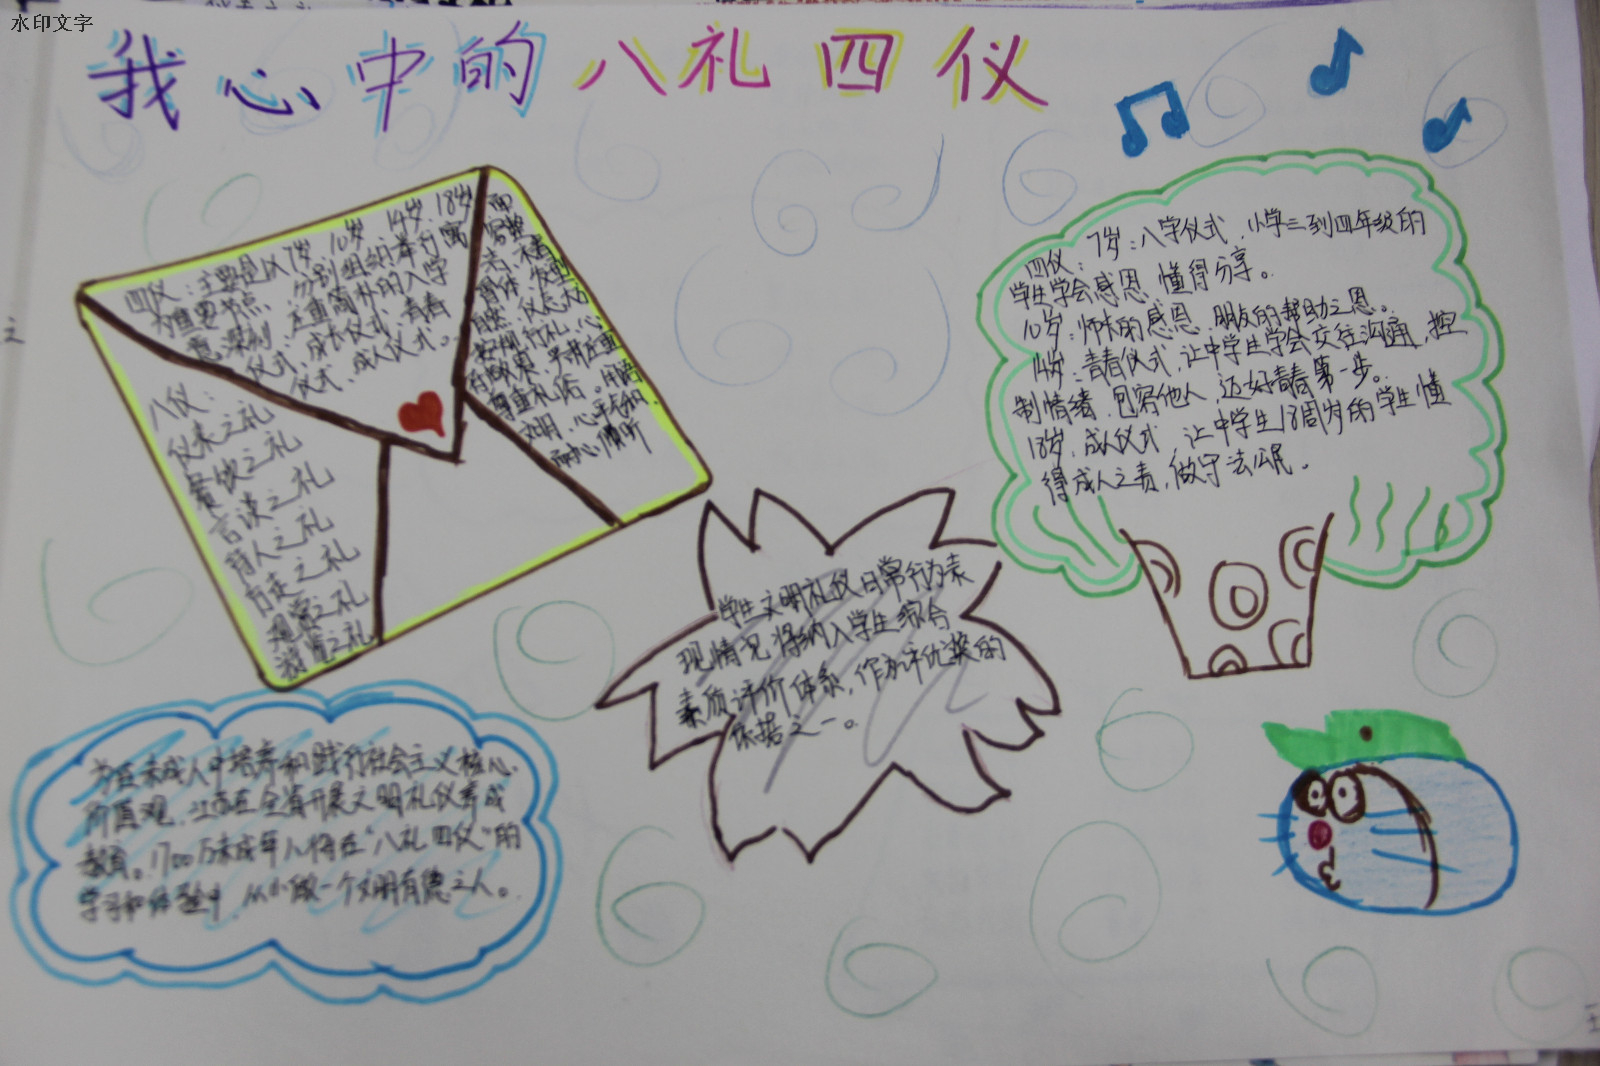 水印文字
我心中的八礼四仪
四仪：主要是以7岁、10岁、14岁、18岁
为重要节点，分别组织举行寓
意深刻、庄重简朴的入学
仪式、成长仪式、青春
仪式、成人仪式。
八仪：
仪表之礼
餐饮之礼
言谈之礼
待人之礼
行走之礼
观赏之礼
游览之礼
尊重礼俗。用语
文明，心平气和，
耐心倾听
四仪：7岁：入学仪式，小学三到四年级的
学生学会感恩，懂得分享。
10岁：师长的感恩、朋友的帮助之恩。
14岁：青春仪式，让中学生学会交往沟通，控
制情绪，包容他人，迈好青春第一步。
18岁，成人仪式，让中学生18周岁的学生懂
得成人之责，做守法公民。
学生文明礼仪日常行为表
现情况将纳入学生综合
素质评价体系，作为评优奖的
依据之一。
为在未成人中培养和践行社会主义核心
价值观，江苏在全省开展文明礼仪养成
教育。1700万未成年人将在“八礼四仪”的
学习和体验中，从小做一个文明有德之人。